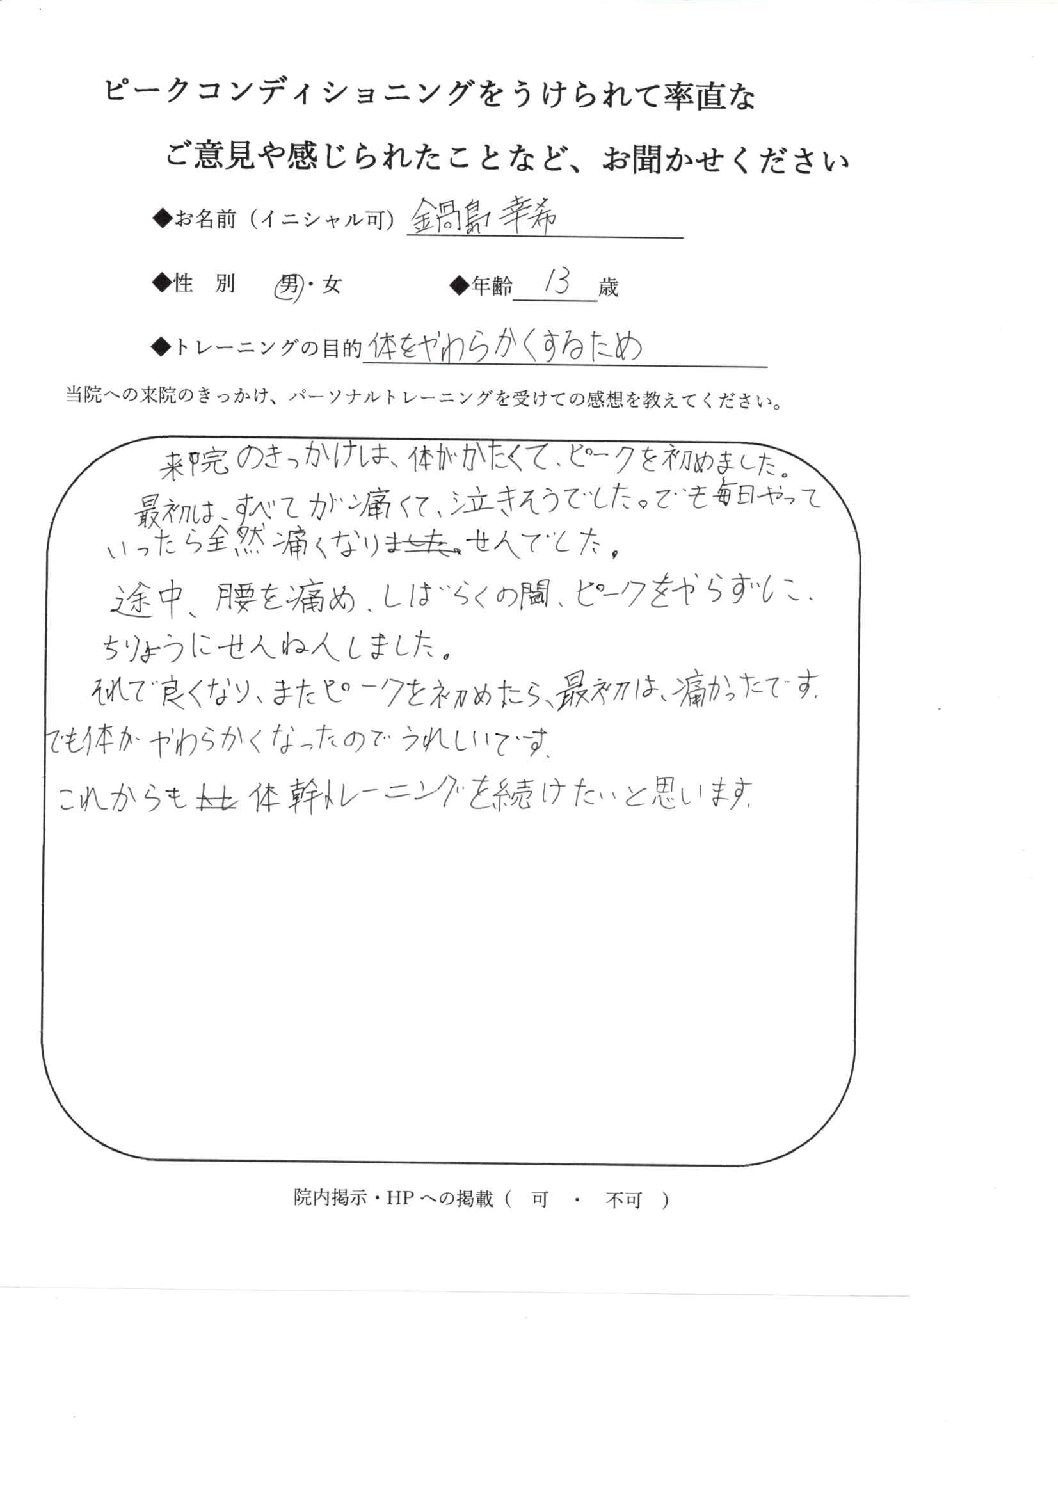 ピークコンディショニングをうけられて率直な
ご意見や感じられたことなど、お聞かせください
◆お名前（イニシャル可）鍋島 幸希
◆性 別 男・女 ◆年齢 13 歳
◆トレーニングの目的 体をやわらかくするため
当院への来院のきっかけ、パーソナルトレーニングを受けての感想を教えてください。
来院のきっかけは、体がかたくて、ピークを初めました。
最初は、すべてが痛くて、泣きそうでした。でも毎日やって
いったら全然痛くなりました。せんでした。
途中、腰を痛め、しばらくの間、ピークをやらずに、
ちりょうにせんねんしました。
それで良くなり、またピークを初めたら、最初は、痛かったです.
でも体が やわらかくなったのでうれしいです.
これからも 体幹トレーニングを続けたいと思います.
院内掲示・HPへの掲載（ 可 ・ 不可 ）